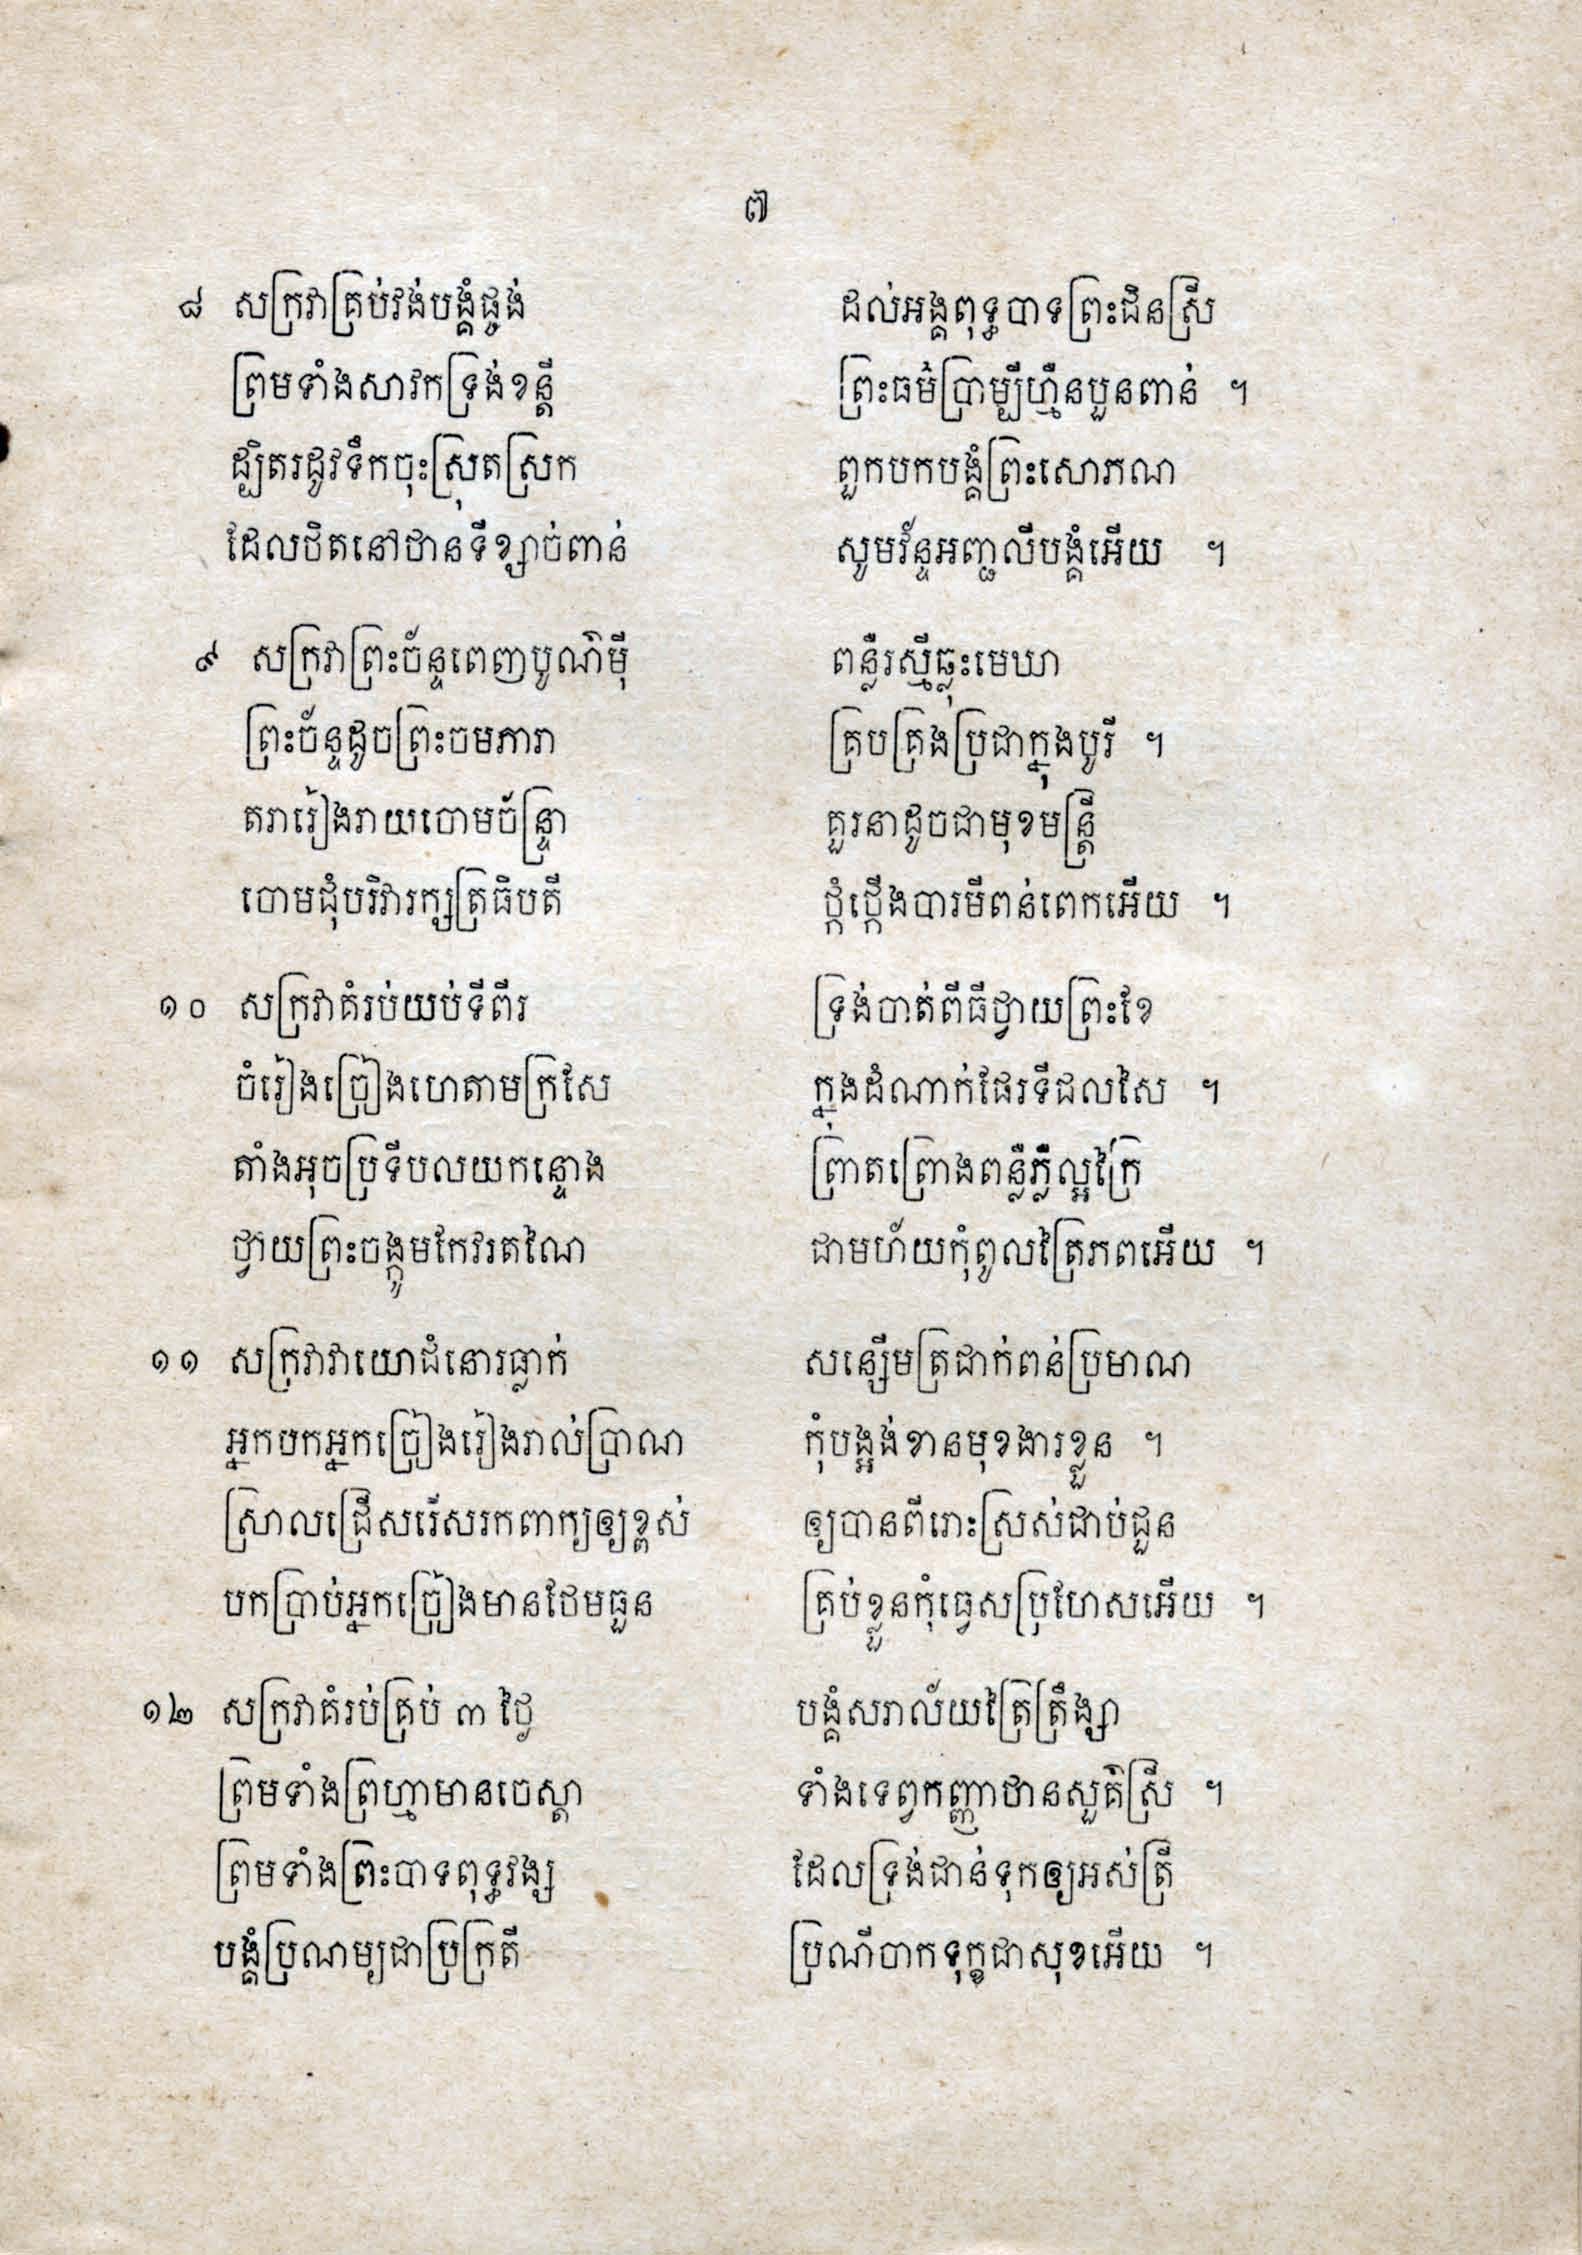 ៧
៨ សក្រវាគ្រប់វង់បង្គំផ្ចង់ ដល់អង្គពុទ្ធបាទព្រះជិនស្រី
ព្រមទាំងសាវកទ្រង់ខន្តី ព្រះធម៌ប្រាម្បីហ្មឺនបួនពាន់ ។
ដ្បិតរដូវទឹកចុះស្រុតស្រក ពួកបកបង្គំព្រះសោភណ
ដែលថិតនៅឋានទីខ្សាច់ពាន់ សូមវ័ន្ទអញ្ជលីបង្គំអើយ ។
៩ សក្រវាព្រះច័ន្ទពេញបូណ៌មុី ពន្លឺរស្មីធ្លុះមេឃា
ព្រះច័ន្ទដូចព្រះចមភារា គ្របគ្រងប្រជាក្នុងបូរី ។
តារារៀងរាយចោមច័ន្ទ្រា គួរនាដូចជាមុខមន្ត្រី
ចោមជុំបរិវារក្សត្រធិបតី ថ្កំថ្កើងបារមីពន់ពេកអើយ ។
១០ សក្រវាគំរប់យប់ទីពីរ ទ្រង់បាត់ពីធីថ្វាយព្រះខែ
ចំរៀងច្រៀងហេតាមក្រសែ ក្នុងដំណាក់ផែរទីជលសៃ ។
តាំងអុចប្រទីបលយកន្ទោង ព្រាតព្រោងពន្លឺភ្លឺល្អក្រៃ
ថ្វាយព្រះចង្កូមកែវរតណៃ ជាមហ័យកុំពូលត្រៃភពអើយ ។
១១ សក្រវាវាយោជំនោរធ្លាក់ សន្សើមត្រជាក់ពន់ប្រមាណ
អ្នកបកអ្នកច្រៀងរៀងរាល់ប្រាណ កុំបង្អង់ខានមុខងារខ្លួន ។
ស្រាលជ្រើសរើសរកពាក្យឲ្យខ្ពស់ ឲ្យបានពីរោះស្រស់ជាប់ដួន
បកប្រាប់អ្នកច្រៀងមានថែមធួន គ្រប់ខ្លួនកុំធ្វេសប្រហែសអើយ ។
១២ សក្រវាគំរប់គ្រប់ ៣ ថ្ងៃ បង្គំសរាល័យត្រៃត្រឹង្សា
ព្រមទាំងព្រហ្មាមានចេស្តា ទាំងទេព្វកញ្ញាឋានសួគ៌ស្រី ។
ព្រមទាំងព្រះបាទពុទ្ធវង្ស ដែលទ្រង់ជាន់ទុកឲ្យអស់ត្រី
បង្គំប្រណម្យជាប្រក្រតី ប្រណីបាកទុក្ខជាសុខអើយ ។